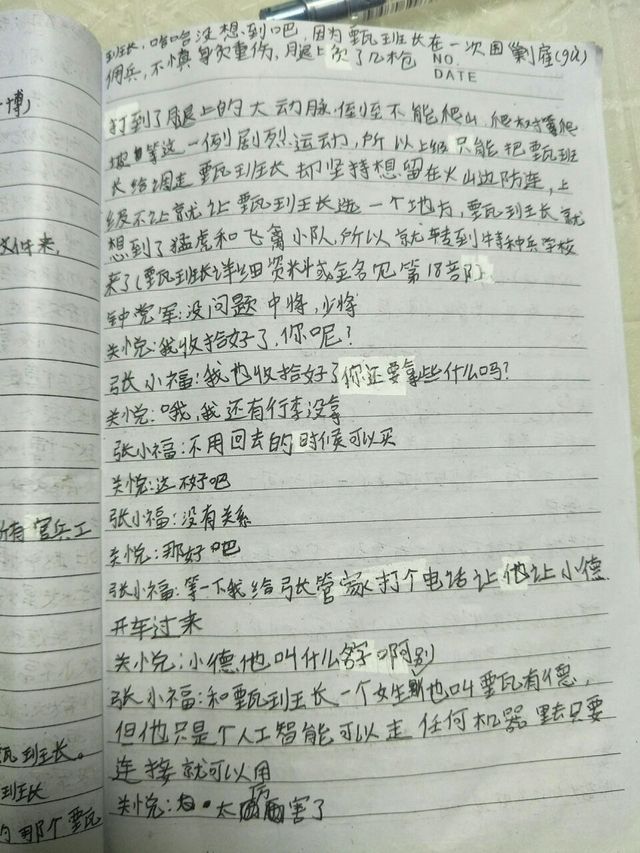 博)
文件来,
所有官兵工
瓦班长。
班长
的那个甄
NO.
DATE
班长,哈哈没想到吧,因为甄瓦班长在一次围剿雇(gù)
佣兵,不慎身负重伤,月退上欠了几枪
打到了月退上的大动脉倒至不能爬山,爬
坡等这一例剧烈运动,所以上级只能把甄瓦班
长给调走甄瓦班长却坚持想留在火山边防连,上
级不让就让甄瓦班长选一个地方,甄瓦班长就
想到了猛虎和飞禽小队,所以就转到特种兵学校
来了(甄瓦班长详细资料或全名见第18部)
钟党军:没问题中将,少将
关悦:我收拾好了,你呢?
张小福:我也收拾好了你还要拿些什么吗?
关悦:哦,我还有行李没拿
张小福:不用回去的时候可以买
关悦:这不好吧
张小福:没有关系
关悦:那好吧
张小福:等一下我给张管家打个电话让他让小德
开车过来
关悦:小德他叫什么名字啊
张小福:和甄瓦班长一个女生她也叫甄瓦有德,
但他只是个人工智能可以走任何机器里去只要
连接就可以用
关悦:太厉害了